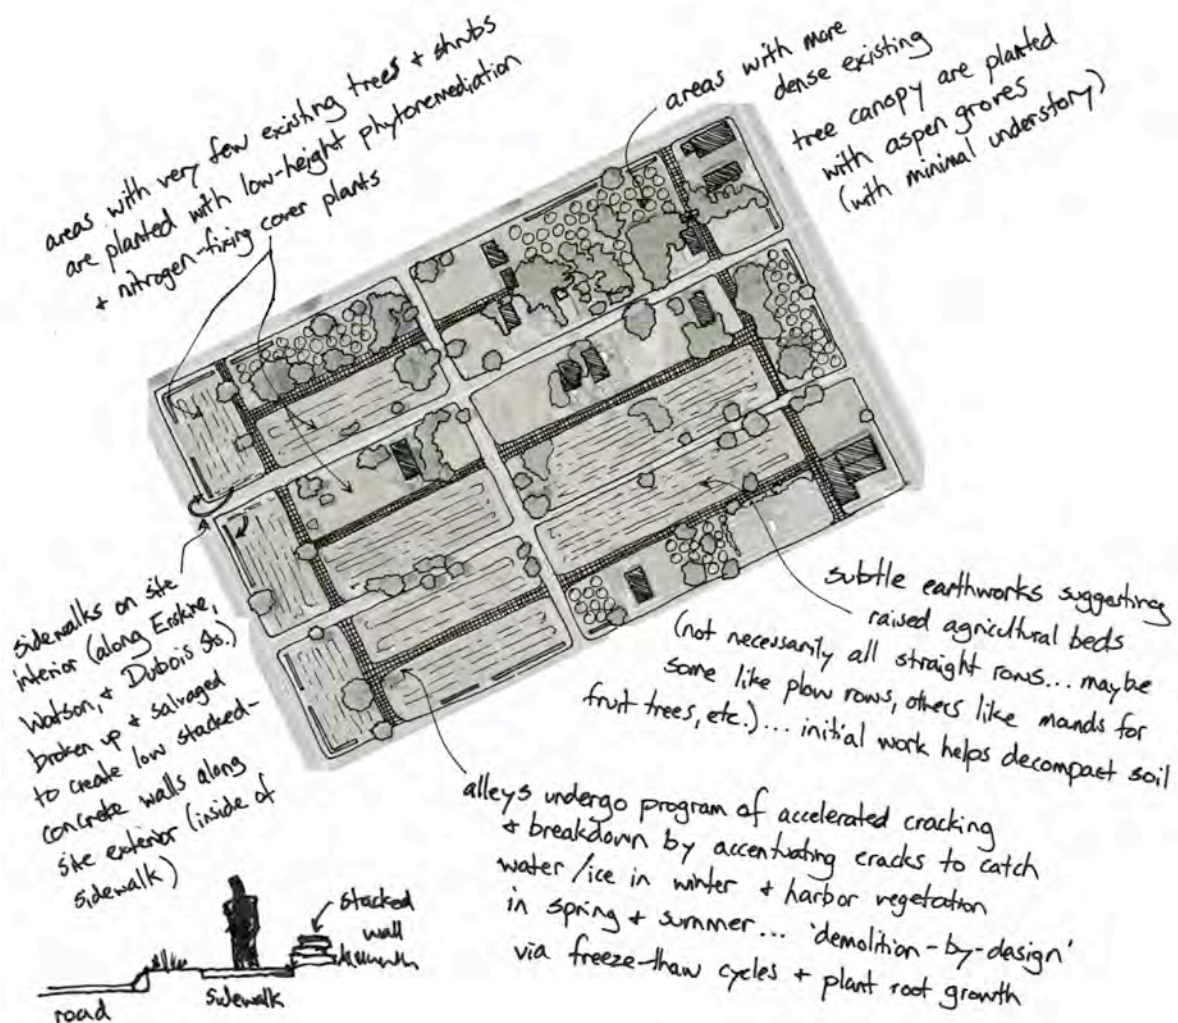 areas with very few existing trees + shrubs
are planted with low-height phytoremediation
+ nitrogen-fixing cover plants
areas with more
dense existing
tree canopy are planted
with aspen groves
(with minimal understory)
sidewalks on site
interior (along Erskine,
Watson, + Dubois Sts.)
broken up + salvaged
to create low stacked-
concrete walls along
site exterior (inside of
sidewalk)
subtle earthworks suggesting
raised agricultural beds
(not necessarily all straight rows... maybe
some like plow rows, others like mounds for
fruit trees, etc.)... initial work helps decompact soil
alleys undergo program of accelerated cracking
+ breakdown by accentuating cracks to catch
water/ice in winter + harbor vegetation
in spring + summer... 'demolition-by-design'
via freeze-thaw cycles + plant root growth
stacked
wall
sidewalk
road